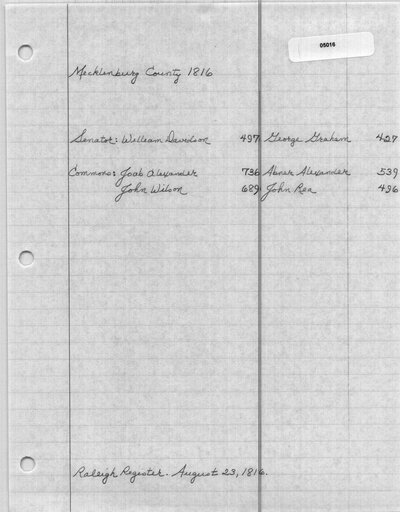 05016
Mecklenburg County 1816
Senator: William Davidson 497 George Graham 427
Commons: Joab Alexander 736 Abner Alexander 539
John Wilson 689 John Rea 496
Raleigh Register. August 23, 1816.